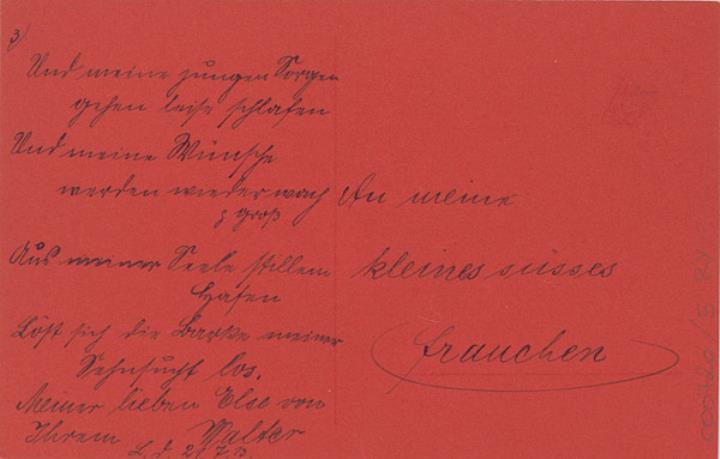 3)
Und meine jungen Sorgen
gehen leise schlafen
Und meine Wünsche
werden wieder wach
& groß
Aus meiner Seele stillem
Hafen
Löst sich die Barke meiner
Sehnsucht los.
Meiner lieben Else von
Ihrem Walter
2/7.13.
An meine
kleines süsses
frauchen